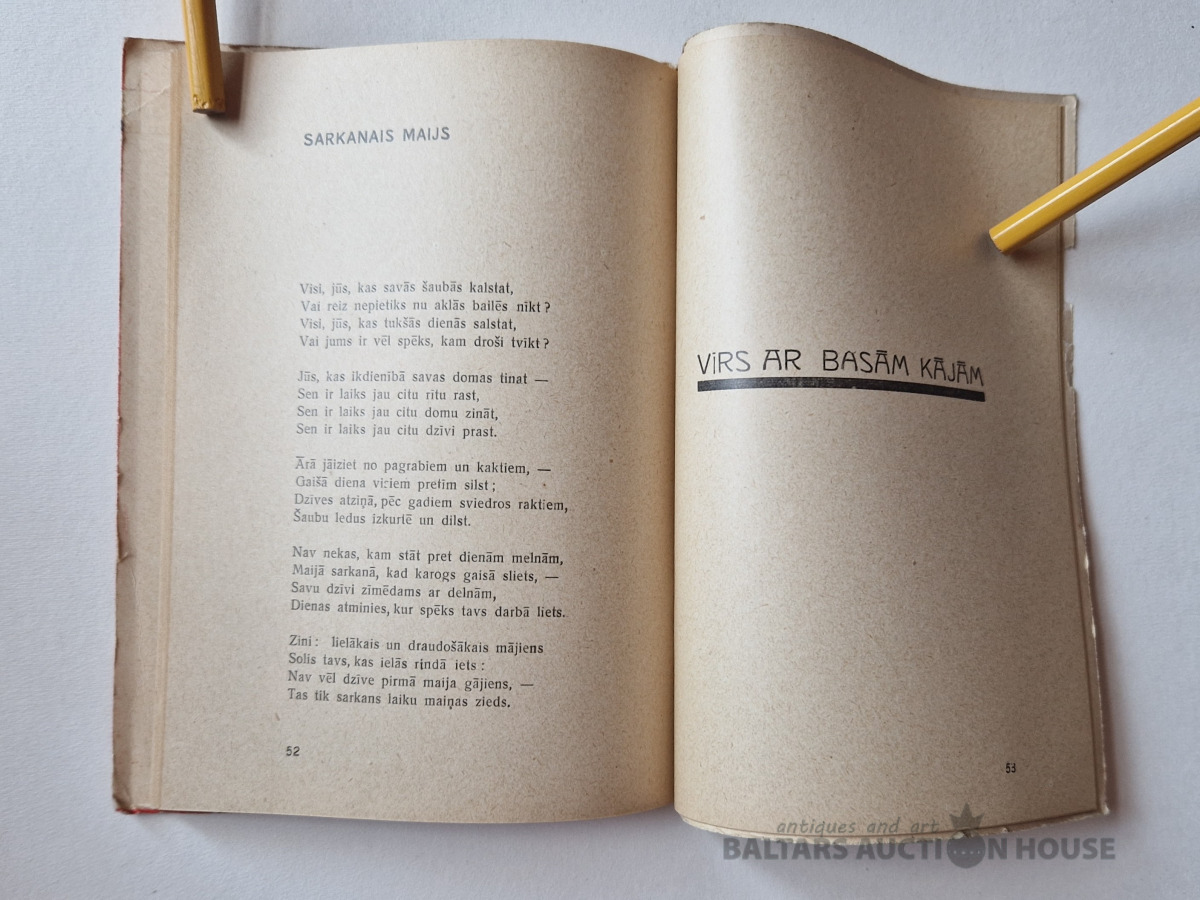 SARKANAIS MAIJS
Visi, jūs, kas savās šaubās kalstat,
Vai reiz nepietiks nu aklās bailēs nīkt?
Visi, jūs, kas tukšās dienās salstat,
Vai jums ir vēl spēks, kam droši tvīkt?
Jūs, kas ikdienībā savas domas tinat —
Sen ir laiks jau citu rītu rast,
Sen ir laiks jau citu domu zināt,
Sen ir laiks jau citu dzīvi prast.
Ārā jāiziet no pagrabiem un kaktiem, —
Gaišā diena viciem pretīm silst;
Dzīves atziņā, pēc gadiem sviedros raktiem,
Šaubu ledus izkurtē un dilst.
Nav nekas, kam stāt pret dienām melnām,
Maijā sarkanā, kad karogs gaisā sliets, —
Savu dzīvi zīmēdams ar delnām,
Dienas atminies, kur spēks tavs darbā liets.
Zini: lielākais un draudošākais mājiens
Solis tavs, kas ielās rindā iets:
Nav vēl dzīve pirmā maija gājiens, —
Tas tik sarkans laiku maiņas zieds.
52
VĪRS AR BASĀM KĀJĀM
53
antiques and art
BALTARS AUCTION HOUSE